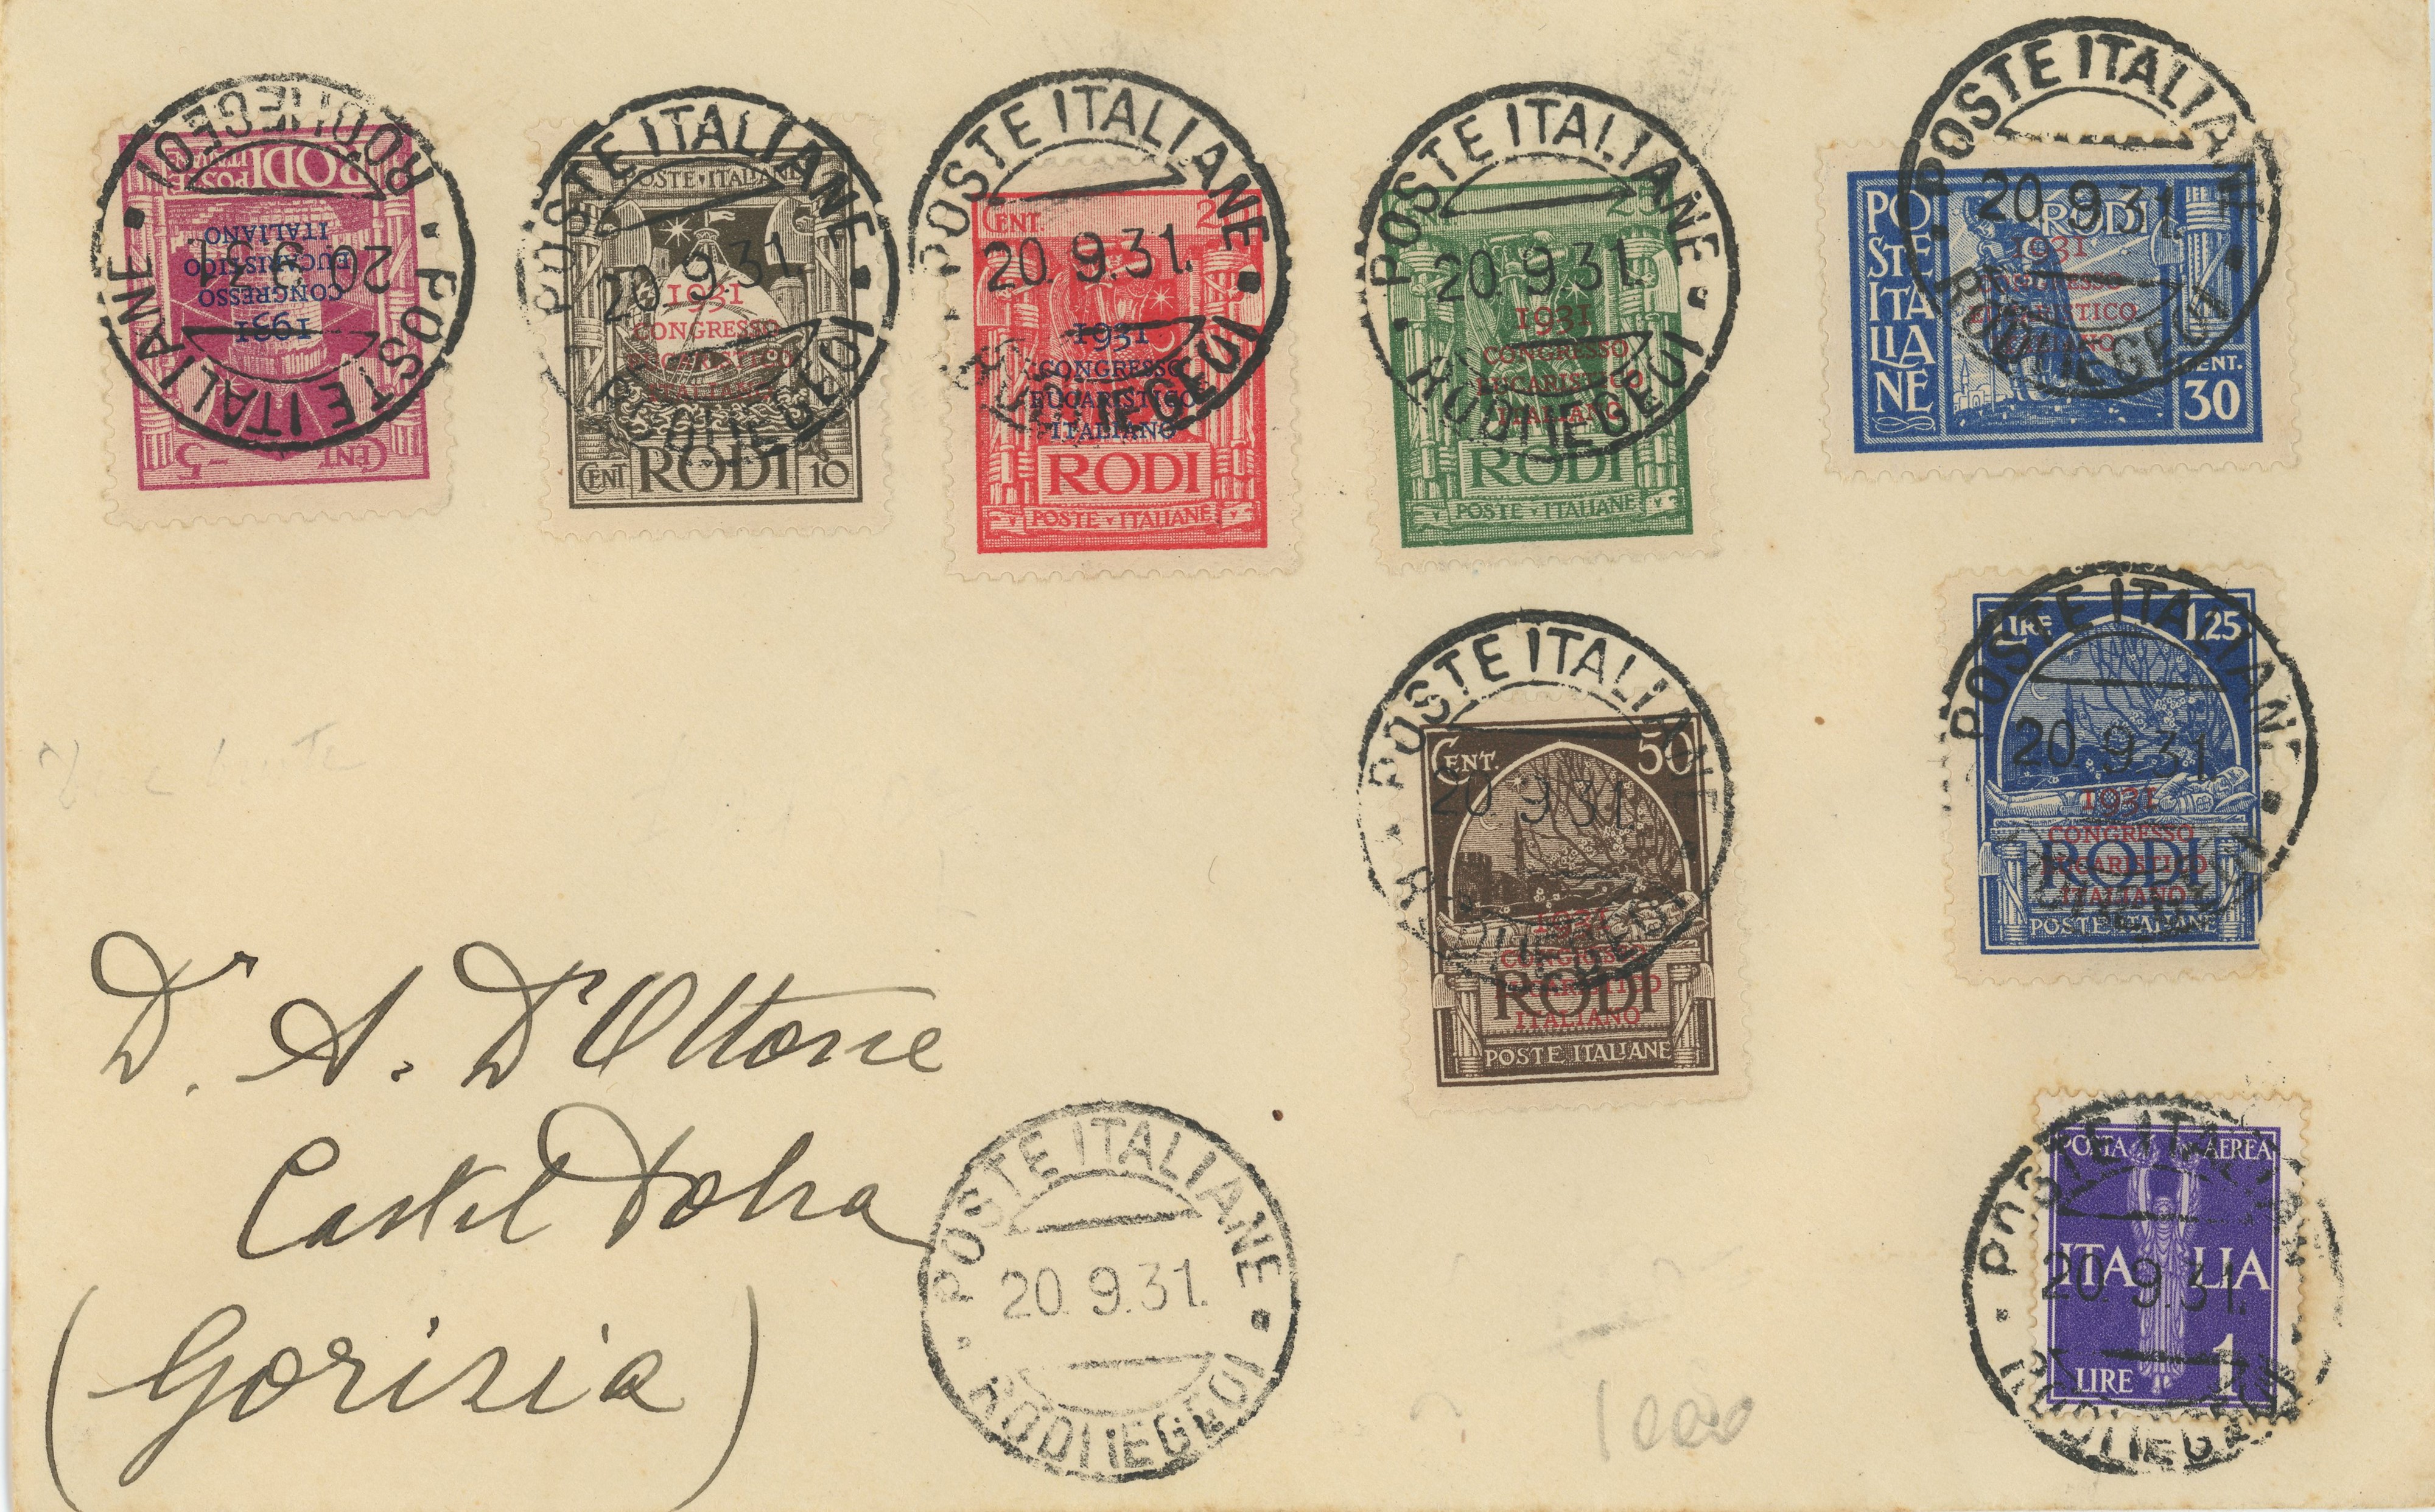 RODI
POSTE ITALIANE
1931
CONGRESSO
EUCARISTICO
ITALIANO
CENT 5
POSTE ITALIANE
20.9.31
RODI (EGEO)
POSTE·ITALIANE
1931
CONGRESSO
EUCARISTICO
ITALIANO
CENT RODI 10
POSTE ITALIANE
20.9.31.
RODI (EGEO)
CENT. 20
1931
CONGRESSO
EUCARISTICO
ITALIANO
RODI
POSTE·ITALIANE
POSTE ITALIANE
20.9.31.
RODI (EGEO)
25
1931
CONGRESSO
EUCARISTICO
ITALIANO
RODI
POSTE·ITALIANE
POSTE ITALIANE
20.9.31.
RODI (EGEO)
POSTE ITALIANE
RODI
1931
CONGRESSO
EUCARISTICO
ITALIANO
CENT.
30
POSTE ITALIANE
20.9.31.
RODI (EGEO)
CENT. 50
1931
CONGRESSO
EUCARISTICO
ITALIANO
RODI
POSTE ITALIANE
POSTE ITALIANE
20.9.31.
RODI (EGEO)
LIRE 1.25
1931
CONGRESSO
EUCARISTICO
ITALIANO
RODI
POSTE ITALIANE
POSTE ITALIANE
20.9.31.
Dr. A. D'Ottone
Castel Dobra
(Gorizia)
POSTE ITALIANE
20.9.31.
RODI (EGEO)
POSTA AEREA
ITALIA
LIRE 1
POSTE ITALIANE
20.9.31.
RODI (EGEO)
1000